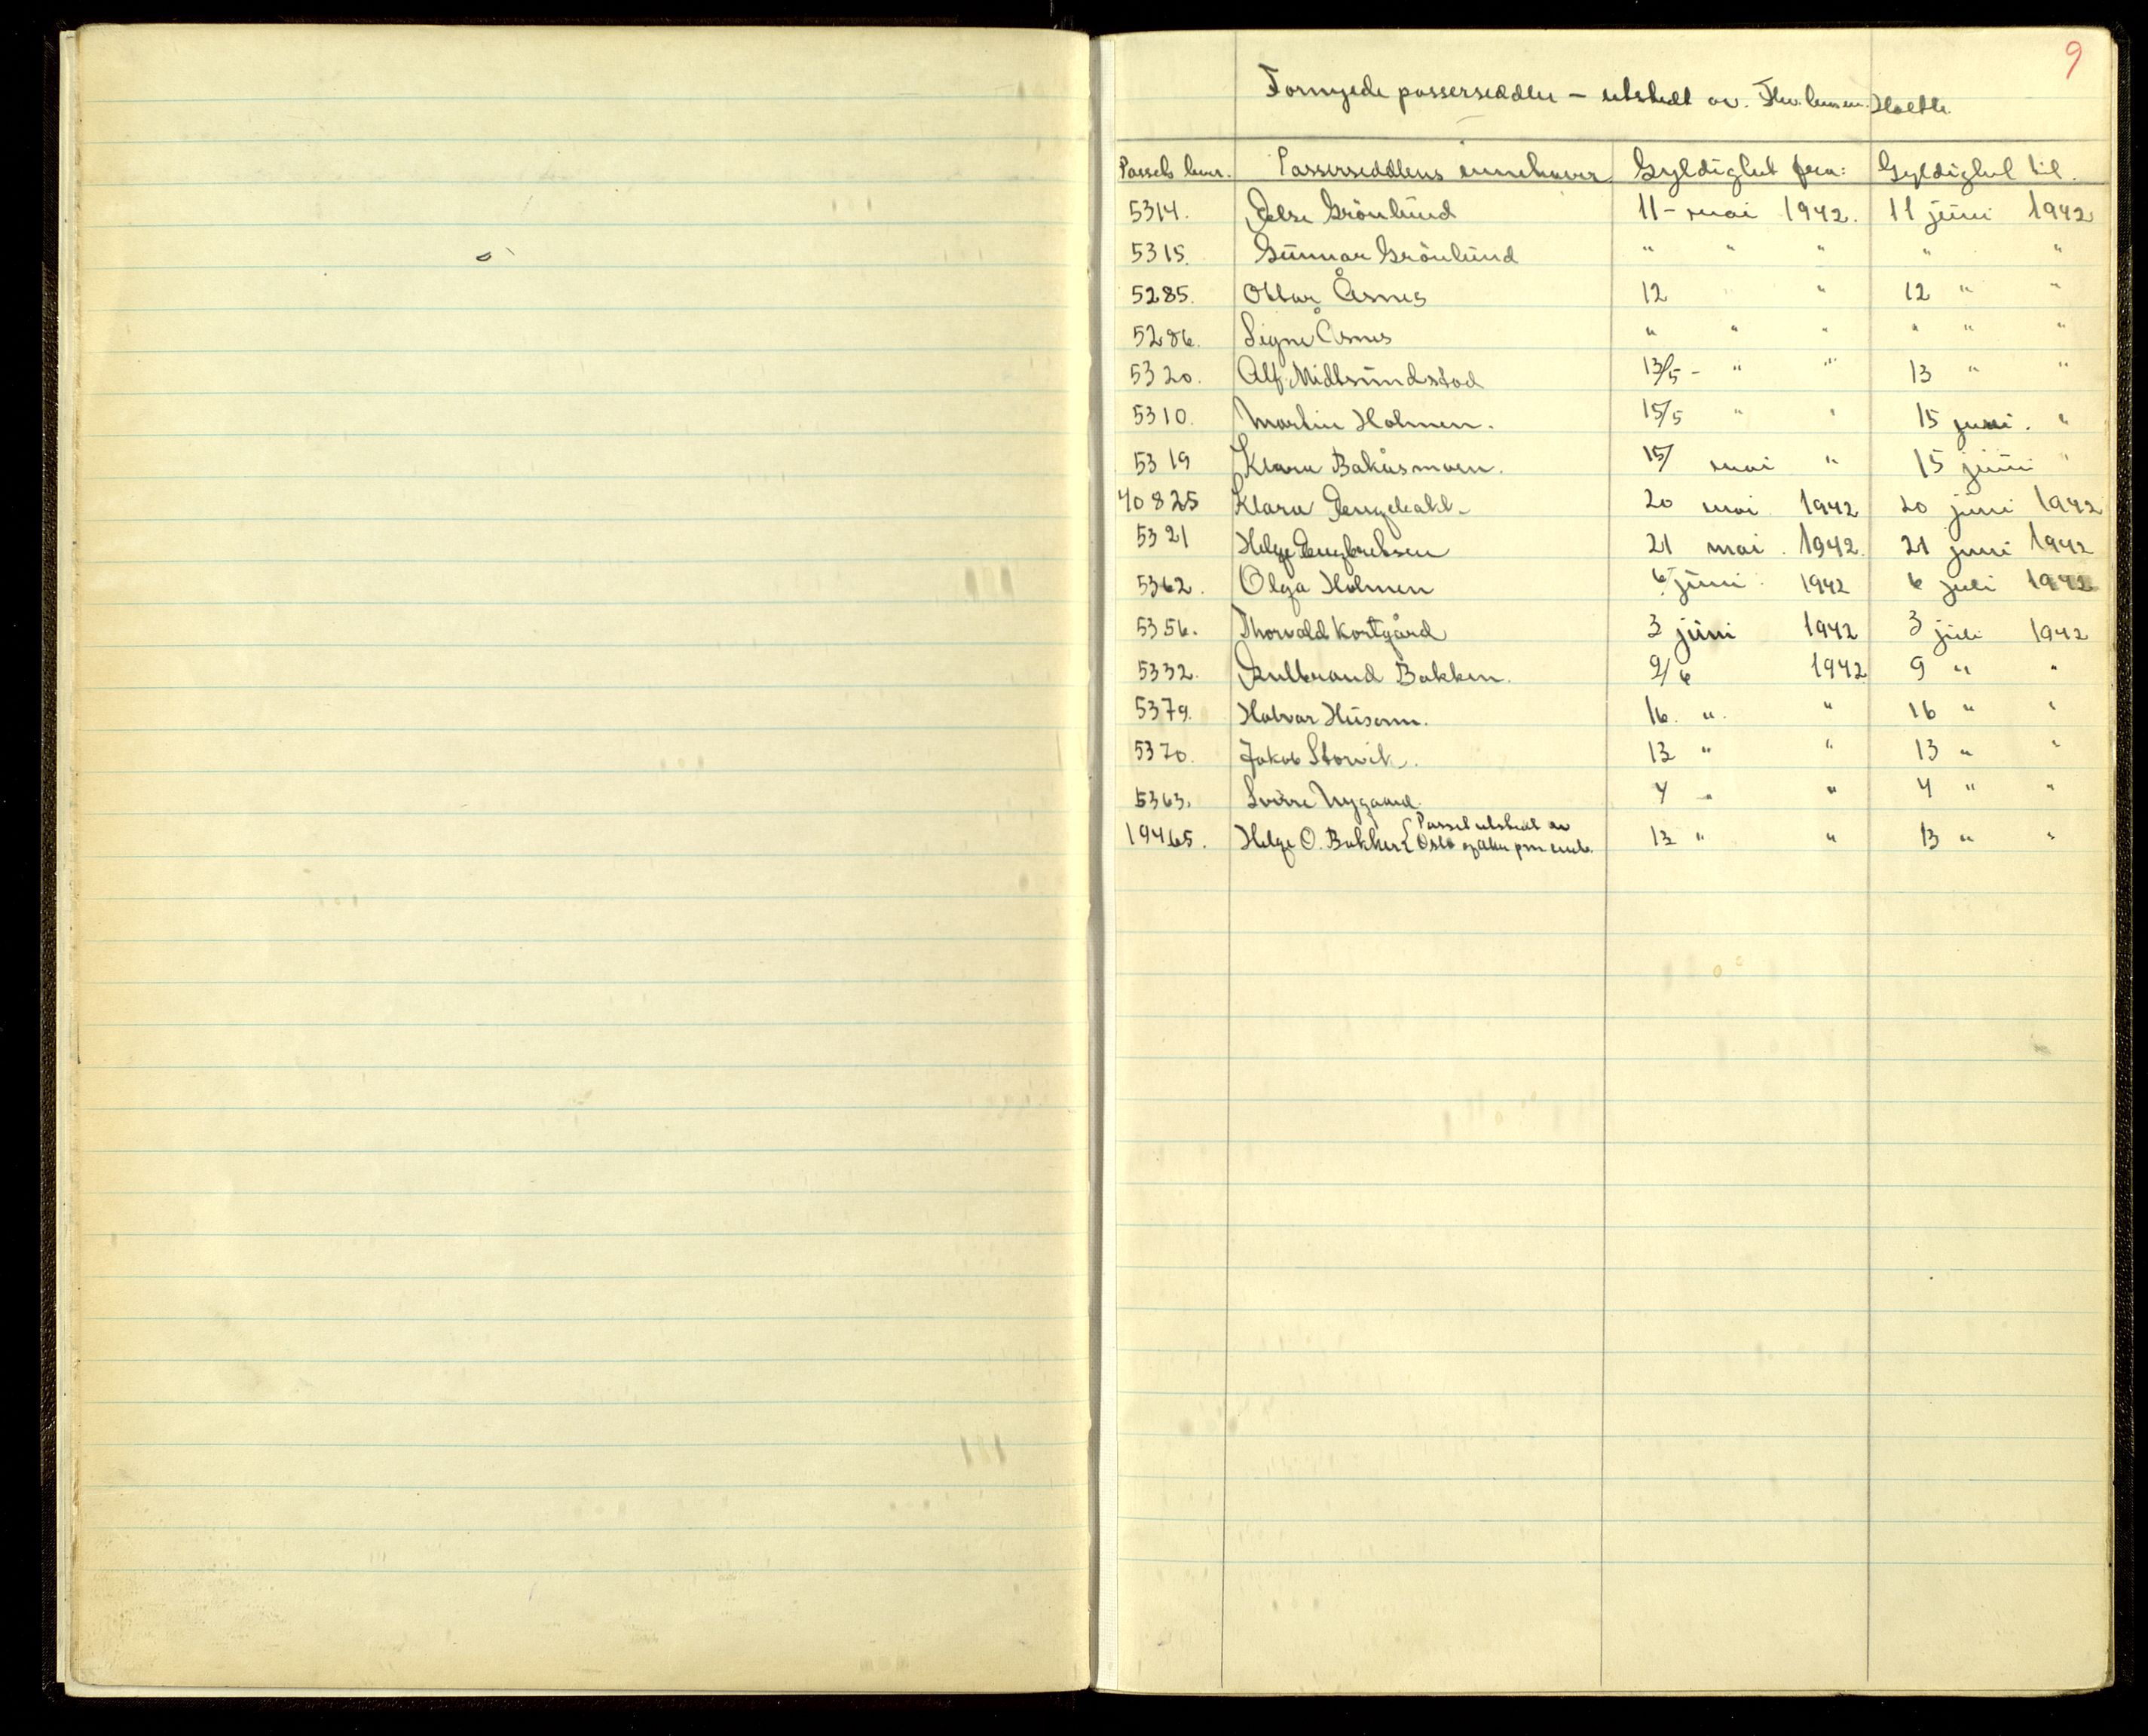 9
Fornyede passersedler - utstedt av
Passets Passerseddlens innehaver Gyldighet fra: Gyldighet til.
5314. Else Grönlünd 11 - mai 1942. 11 jüni 1942
5315. Günnar Grönlünd " " " " "
5285. Ottar Åsnes 12 " 12 " "
5286. Signe Åsnes " " " " " "
5320. Alf Midtsündstad 13/5 - " " 13 " "
5310. Martin Holmen. 15/5 " " 15 juni. "
5319 Klara Bakåsmoen. 15/ mai " 15 jüni "
40825 Klara 20 mai 1942 20 jüni 1942
5321 Helge Engebretsen 21 mai. 1942. 21 juni 1942
5362. Olga Holmen 6 jüni 1942 6 juli 1942
5356. Thorvald Kortgård 3 jüni 1942 3 jüli 1942
5332. Gulbrand Bakken. 9/6 1942 9 " "
5379. Halvar Hüsom. 16. " " 16 " "
5370. Jakob Storvik. 13 " " 13 " "
5363. Sverre Nygaard. 4 " " 4 " "
19465. Helge O. Bakken { Passet utstedt av 13 " " 13 " "
Oslo